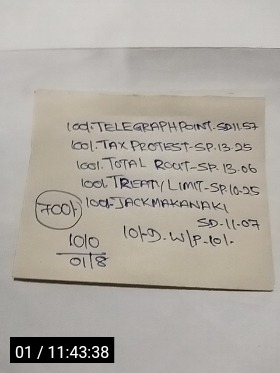 100/.TELEGRAPHPOINT-SD11.57
100/.TAX PROTEST-SP.13.25
100/.TOTAL ROUT-SP.13.06
100/.TREATY LIMIT-SP.10.25
700/- 100/-JACKMAKANAKI
SD-11-07
1010 10/-D.W/P.10/.
01/8
01 / 11:43:38